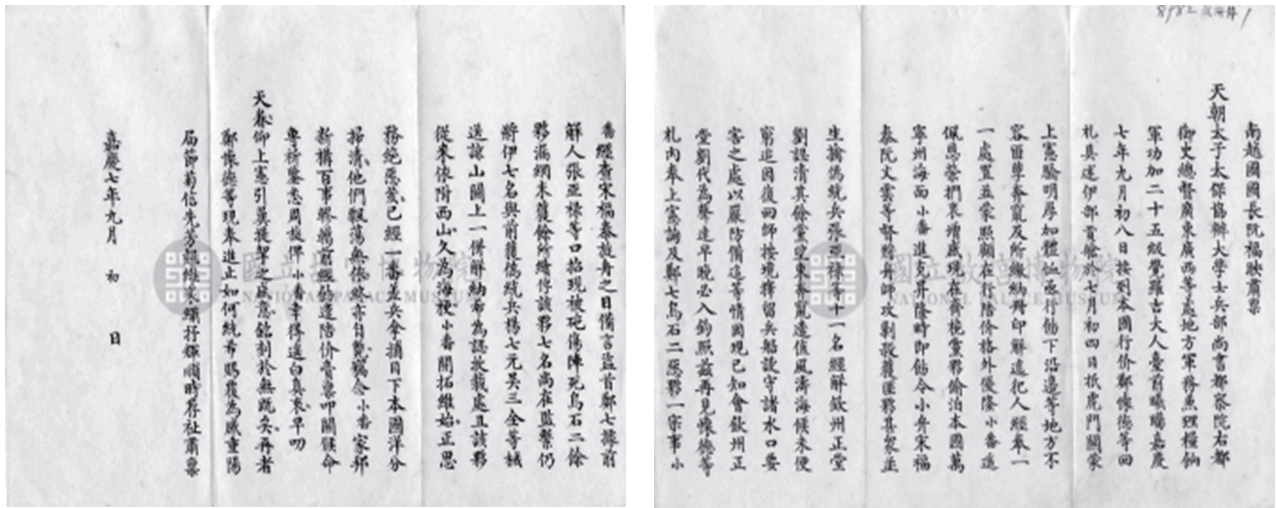 8982 附件1
南越國國長阮福映肅稟
天朝太子太保協辦大學士兵部尚書都察院右都
御史總督廣東廣西等處地方軍務兼理糧餉
軍功加二十五級覺羅吉大人臺前曦矚嘉慶
七年九月初八日接到本國行价鄭懷德等回
札具達伊部賫條於七月初四日抵虎門關蒙
上憲驗明厚加體恤亟行飭下沿邊等地方不
容留辜奔竄及所繳納冊印解遞犯人經奉一
一處置並蒙照顧在行陪价格外優隆小番遙
佩恩榮捫衷增感現在齊桅黨夥偷泊本國萬
寧州海面小番進克昇隆時即飭令小弁宋福
泰阮文雲等督管舟師攻剿殺獲匪夥甚眾並
生擒偽統兵張亞祿等十一名經解欽州正堂
劉 清其餘黨望東奔竄遭值風濤海候未便
窮追因復回師按境擇留兵船設守諸水口要
害之處以嚴防備這等情國現已知會欽州正
堂劉代為聲達早晚必入鈞照茲再見懷德等
札內奉上憲詢及鄭七烏石二惡夥一宗事小
番經查宋福泰放舟之日備言盜首鄭七據前
解人張亞祿等口招現被砲傷陣死烏石二餘
夥漏網未獲餘所續俘該夥七名尚在監繫仍
將伊七名與前獲偽統兵楊七元吳三全等械
送諒山關上一併解納希為認放裁處且該夥
從來依附西山久為海梗小番開拓維始正思
務絕惡蔓已經一番差兵會捕目下本國洋分
掃清他們飄蕩無依終亦自斃竊念小番家邦
新構百事幹揚前經飭遣陪价耑意叩關候命
專祈鑒念周旋俾小番幸得遙白真衷早叨
天眷仰上憲引翼提挈之處感銘刻於無既矣再者
鄭懷德等現來進止如何統希賜覆為感重陽
屆節菊信先芳 維 縟抒輝順時存祉肅稟
嘉慶七年九月 初 日
國立故宮博物院
NATIONAL PALACE MUSEUM
國立故宮博物院
NATIONAL PALACE MUSEUM